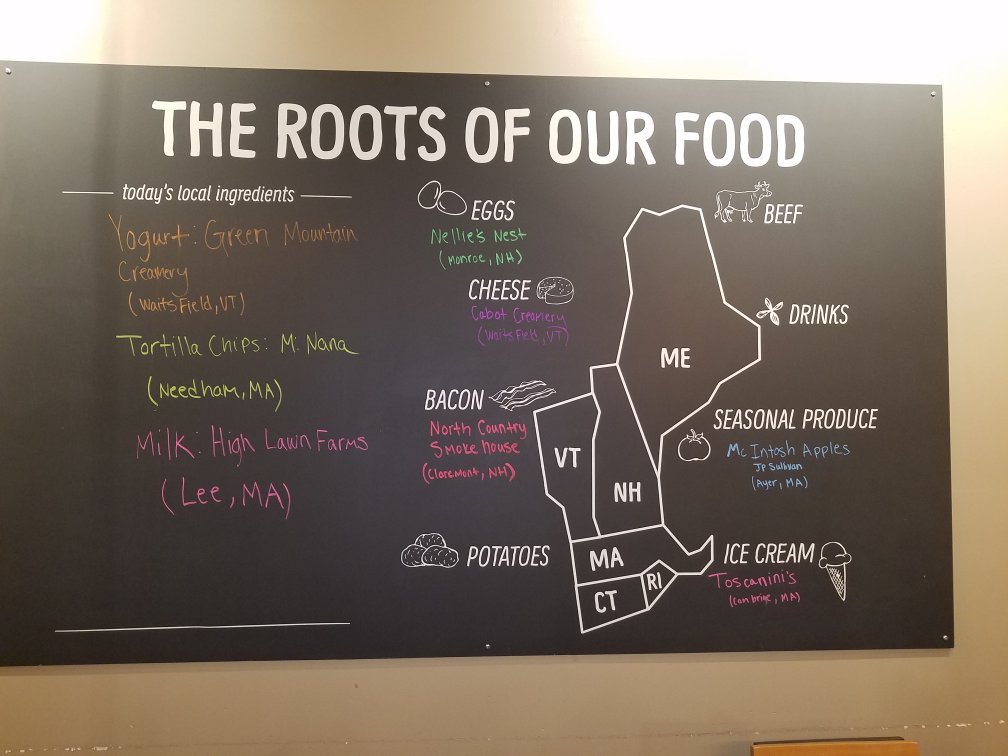 THE ROOTS OF OUR FOOD
today's local ingredients
Yogurt: Green Mountain
Creamery
(Waitsfield, VT)
Tortilla Chips: M. Nana
(Needham, MA)
Milk: High Lawn Farms
(Lee, MA)
EGGS
Nellie's Nest
(Monroe, NH)
CHEESE
Cabot Creamery
(Waitsfield, VT)
BACON
North Country
Smoke house
(Claremont, NH)
POTATOES
BEEF
DRINKS
SEASONAL PRODUCE
McIntosh Apples
JP Sullivan
(Ayer, MA)
ICE CREAM
Toscanini's
(Cambrige, MA)
ME
VT
NH
MA
CT
RI